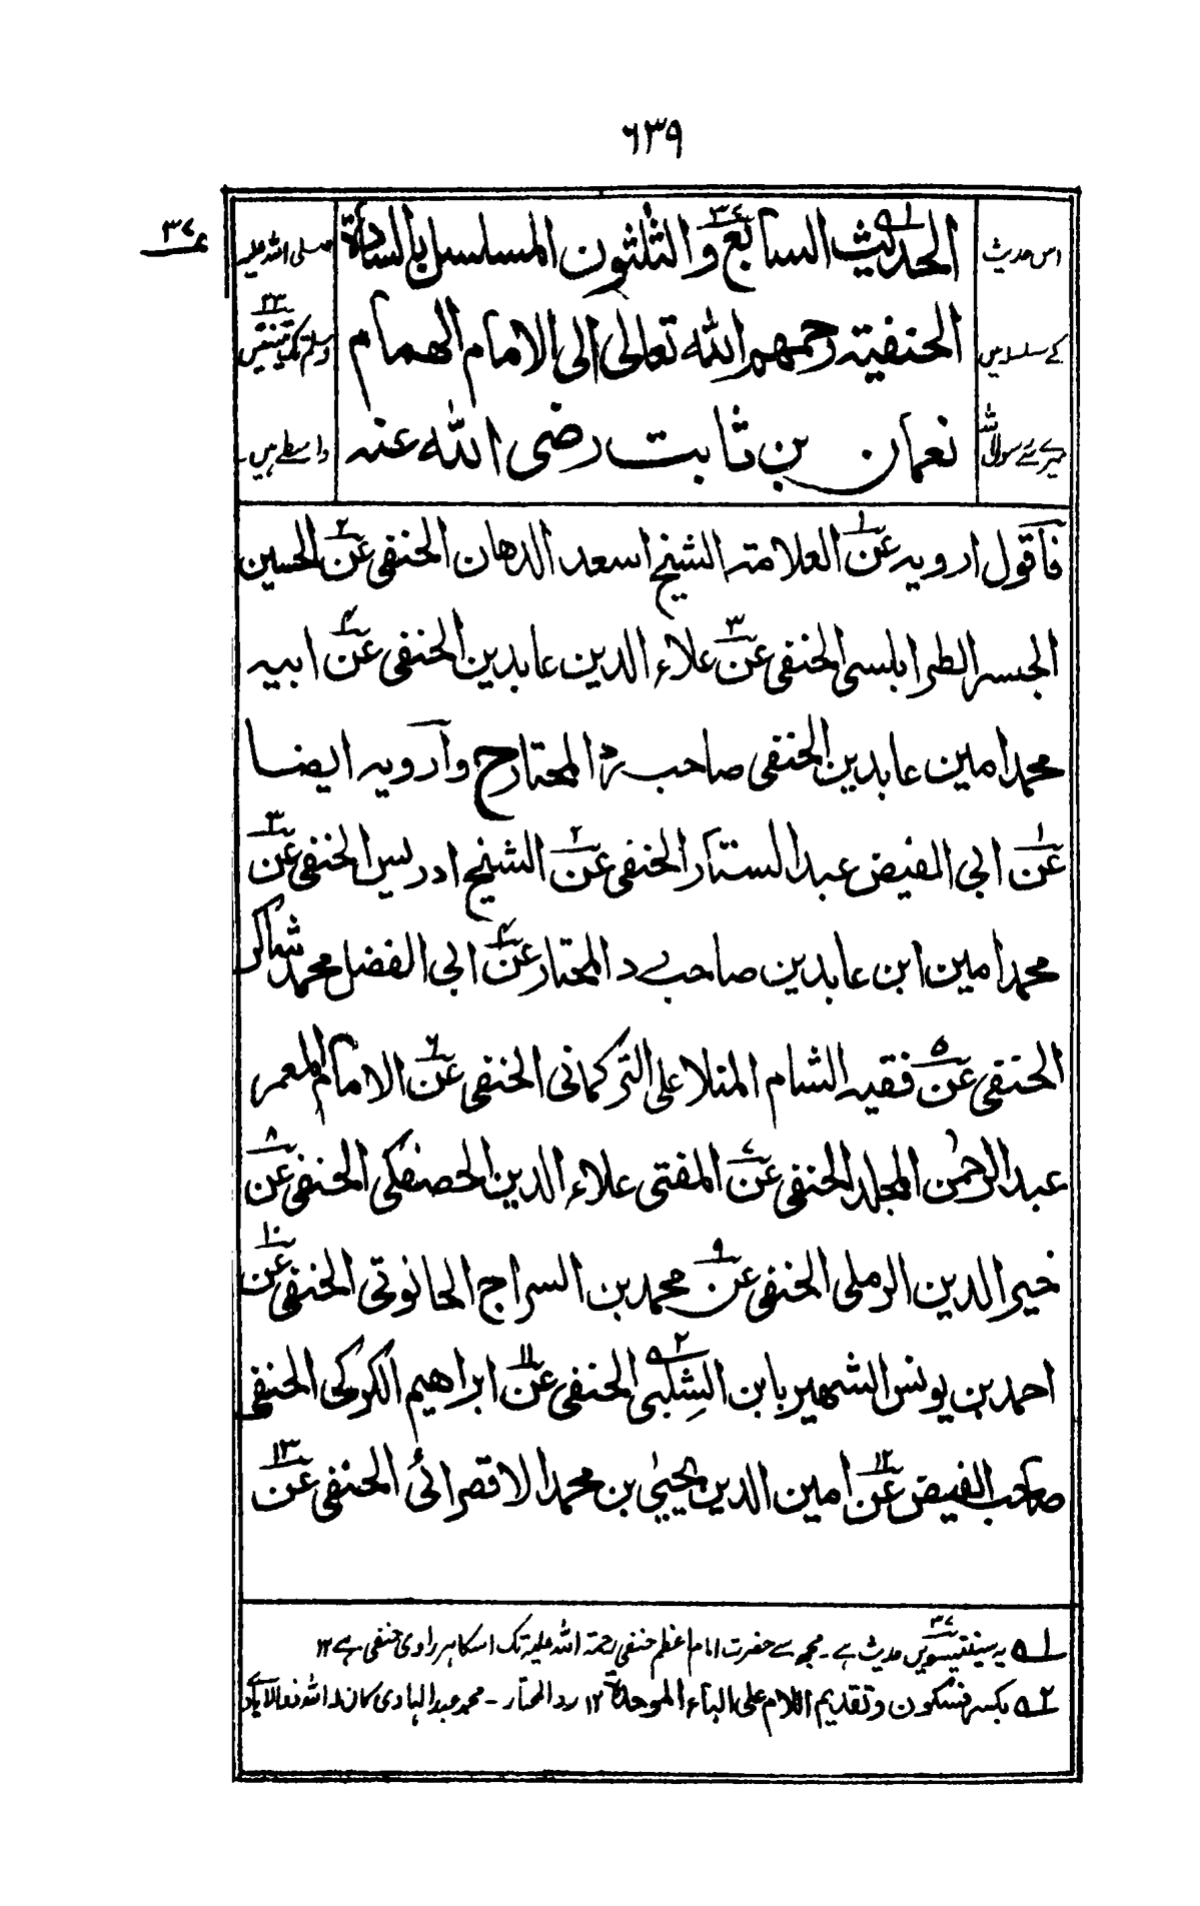 ٦٣٩
٣٧
اس حدیث
کے سلسلہ میں
میرے سے رسول اللہ
الحدیث السابع والثلثون المسلسل بالسادة
الحنفیة رحمهم الله تعالی الی الامام الهمام
نعمان بن ثابت رضی الله عنه
صلی اللہ علیہ
وسلم تک تینتیس ٣٣
واسطے ہیں۔
فاقول ارویه عن١ العلامة الشیخ اسعد الدهان الحنفی عن٢ الحسین
الجسر الطرابلسی الحنفی عن٣ علاء الدین عابدین الحنفی عن٤ ابیه
محمد امین عابدین الحنفی صاحب رد المحتار ح وارویه ایضا
عن١ ابی الفیض عبد الستار الحنفی عن٢ الشیخ ادریس الحنفی عن٣
محمد امین ابن عابدین صاحب رد المحتار عن٤ ابی الفضل محمد شاکر
الحنفی عن٥ فقیه الشام المنلا علی الترکمانی الحنفی عن٦ الامام المعمر
عبد الرحمٰن المجلد الحنفی عن٧ المفتی علاء الدین الحصفکی الحنفی عن٨
خیر الدین الرملی الحنفی عن٩ محمد بن السراج الحانوتی الحنفی عن١٠
احمد بن یونس الشهیر بابن الشِلبی الحنفی عن١١ ابراهیم الکرکی الحنفی
صاحب الفیض عن١٢ امین الدین یحییٰ بن محمد الاقصرائی الحنفی عن١٣
١ؔ یہ سینتیسویں ٣٧ حدیث ہے۔ مجھ سے حضرت امام اعظم حنفی رحمۃ اللہ علیہ تک اسکا ہر راوی حنفی ہے ١٢
٢ؔ بکسر فسکون وتقدیم اللام علی الباء الموحدة ١٢ رد المحتار۔ محمد عبد الہادی کان لہ اللہ